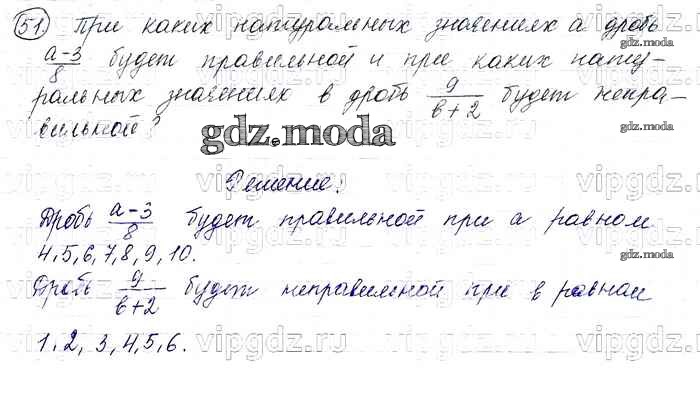 51. При каких натуральных значениях а дробь
а-3/8 будет правильной и при каких нату-
ральных значениях в дробь 9/в+2 будет непра-
вильной?
gdz.moda
Решение:
Дробь а-3/8 будет правильной при а равном
4,5,6,7,8,9,10.
Дробь 9/в+2 будет неправильной при в равном
1,2,3,4,5,6.